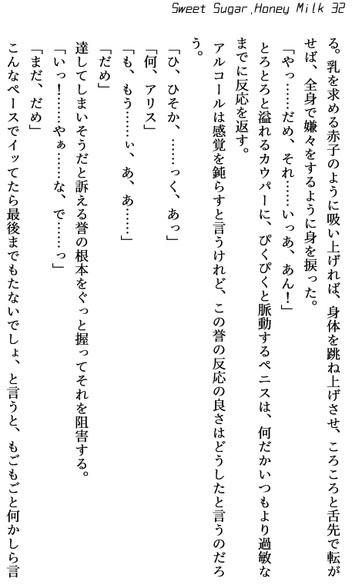 Sweet Sugar,Honey Milk 32
る。乳を求める赤子のように吸い上げれば、身体を跳ね上げさせ、ころころと舌先で転が
せば、全身で嫌々をするように身を捩った。
「やっ……だめ、それ……いっあ、あん！」
とろとろと溢れるカウパーに、ぴくぴくと脈動するペニスは、何だかいつもより過敏な
までに反応を返す。
アルコールは感覚を鈍らすと言うけれど、この誉の反応の良さはどうしたと言うのだろ
う。
「ひ、ひそか、……っく、あっ」
「何、アリス」
「も、もう……ぃ、あ、あ……」
「だめ」
達してしまいそうだと訴える誉の根本をぐっと握ってそれを阻害する。
「いっ！……やぁ……な、で……っ」
「まだ、だめ」
こんなペースでイッてたら最後までもたないでしょ、と言うと、もごもごと何かしら言